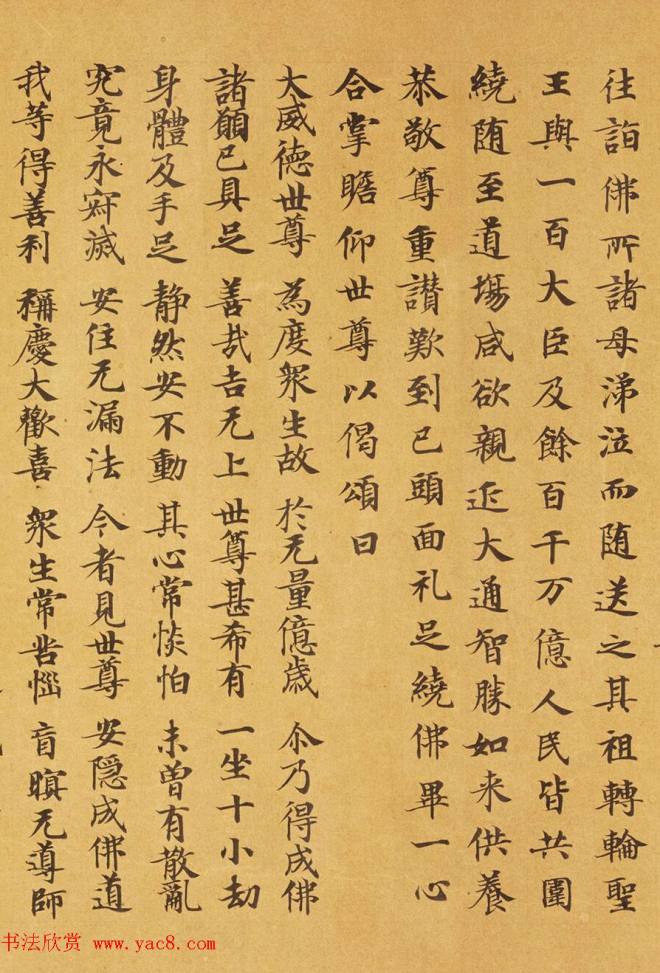 往詣佛所諸母涕泣而随送之其祖轉輪聖
王與一百大臣及餘百千万億人民皆共圍
繞随至道場咸欲親近大通智勝如来供養
恭敬尊重讃歎到已頭面礼足繞佛畢一心
合掌瞻仰世尊以偈頌曰
大威徳世尊 為度衆生故 於无量億歳 尒乃得成佛
諸願已具足 善哉吉无上 世尊甚希有 一坐十小劫
身體及手足 静然安不動 其心常惔怕 未曽有散亂
究竟永寂滅 安住无漏法 今者見世尊 安隠成佛道
我等得善利 稱慶大歡喜 衆生常苦惱 盲瞑无導師
书法欣赏 www.yac8.com